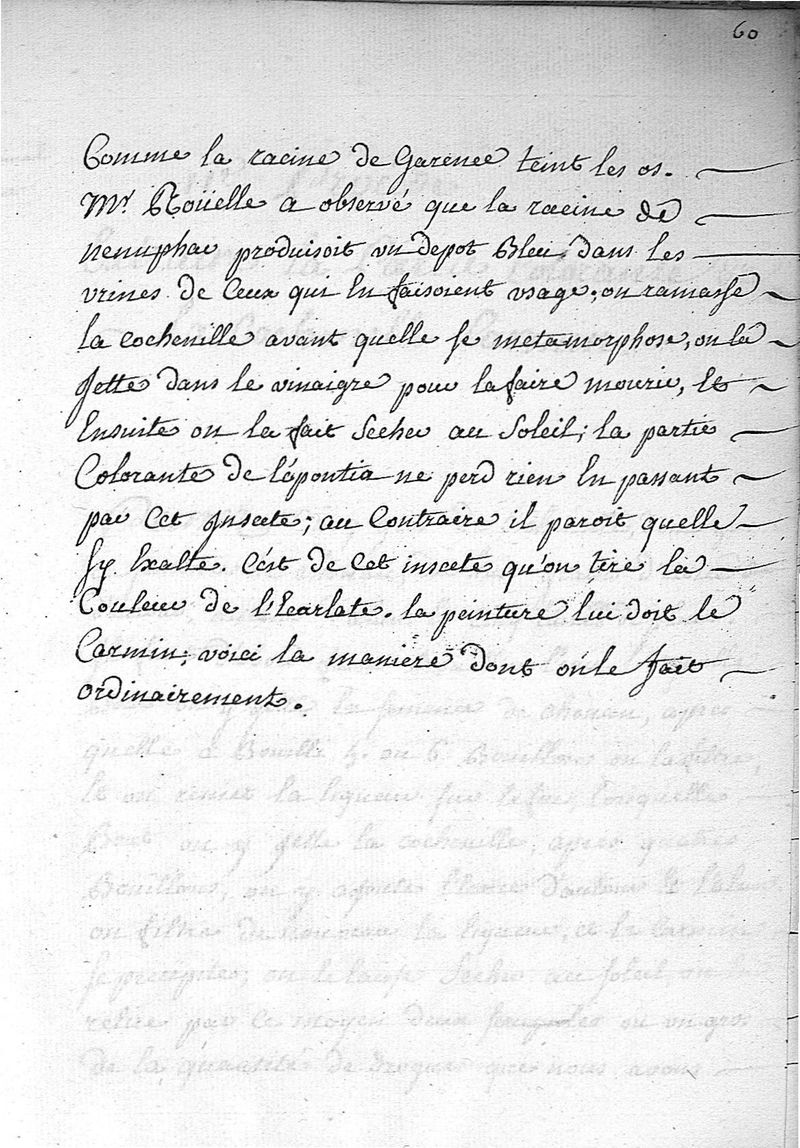 60
Comme la racine de Garence teint les os.
Mr. Roüelle a observé que la racine de
nenuphar produisoit un depot Bleu dans les
urines de Ceux qui En faisoient usage; on ramasse
la cochenille avant quelle se metamorphose, on la
Jette dans le vinaigre pour la faire mourir, Et
Ensuite on la fait Secher au Soleil; la partie
Colorante de l'apontia ne perd rien En passant
par Cet Insecte; au Contraire il paroit quelle
sy Exalte. C'est de Cet insecte qu'on tire la
Couleur de l'Ecarlate. la peinture lui doit le
Carmin; voici la maniere dont on le fait
ordinairement.